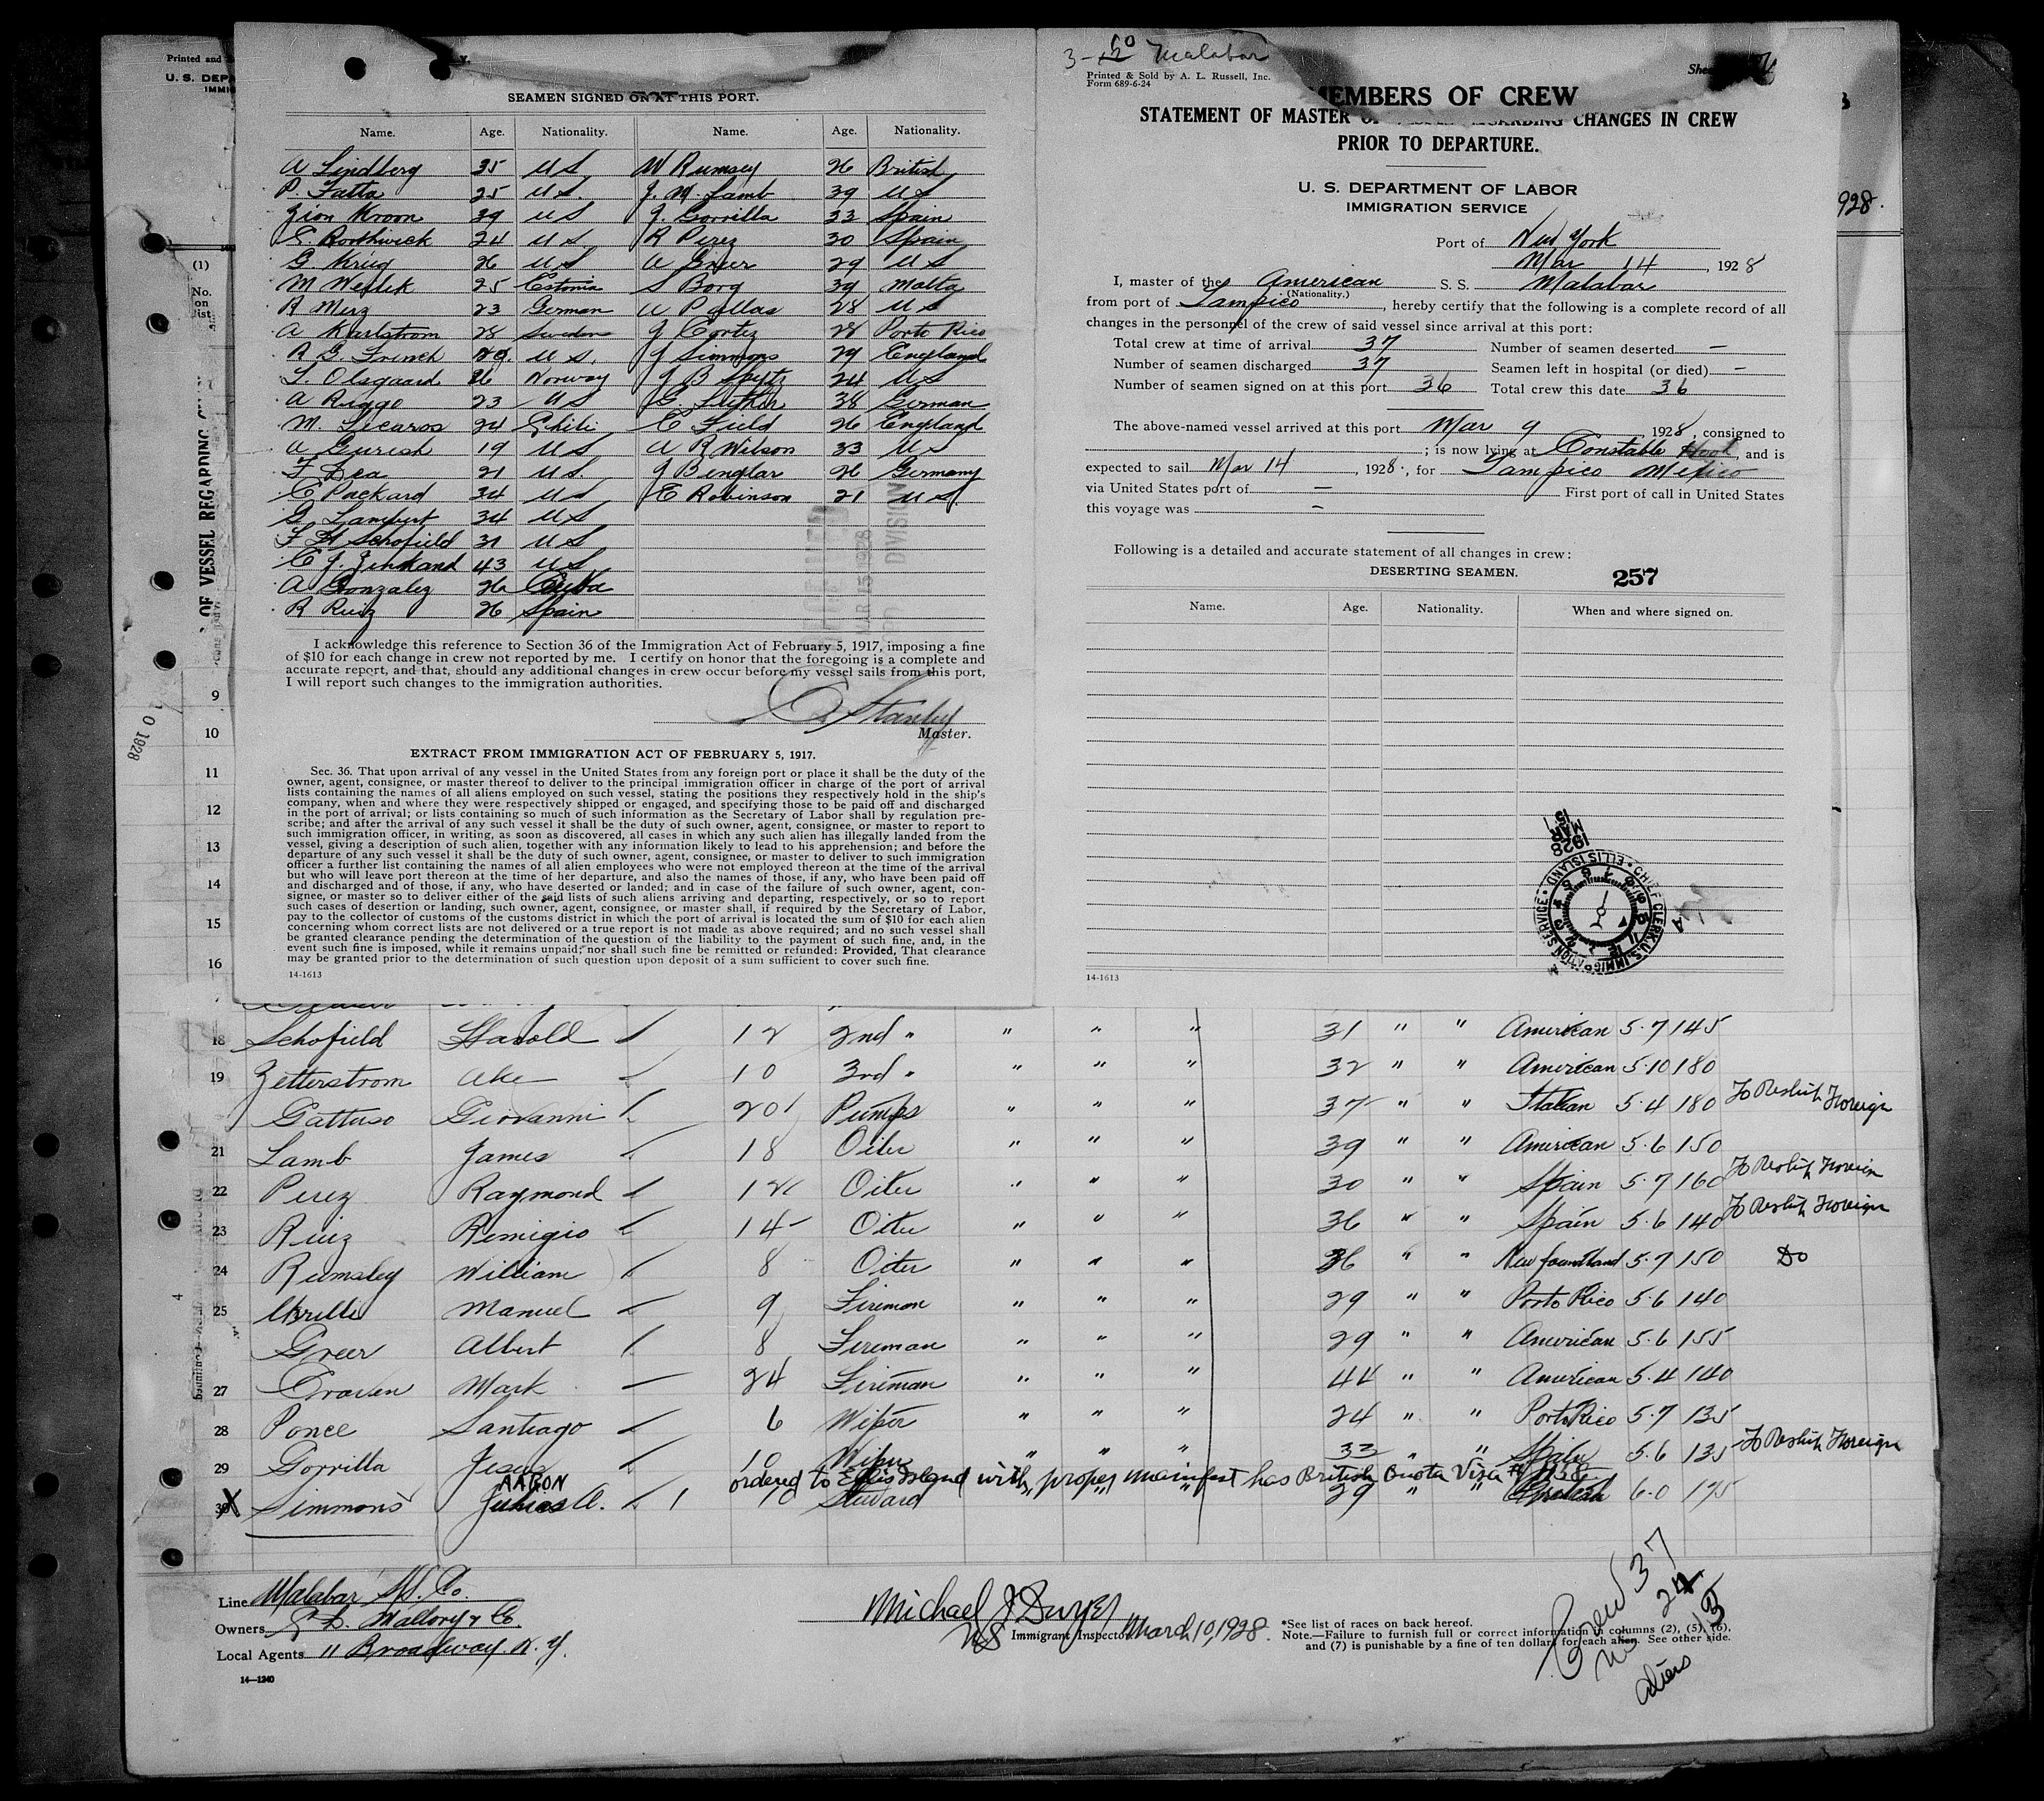 Printed and
U. S. DEPA
IMMIG
(1)
No. on list.
OF VESSEL REGARDING
SEAMEN SIGNED ON AT THIS PORT.
Name. Age. Nationality. Name. Age. Nationality.
A Lindberg 35 U S W Rumsey 26 British
P. Fatta 25 U S. J. M. Lamb 39 U S
Zion Kroon 39 U S J. Gorrilla 33 Spain
24 U S. R Perez 30 Spain
G. Krug 26 U S A Greer 29 U S
M 25 Estonia S Borg 39 Malta
R Merz 23 German 28 U S
A Karlstrom 28 Sweden J Cortez 28 Porto Rico
R G. French U S. J Simmons 29 England
T. Olsgaard 26 Norway J B 24 U S
A Riggo 23 U S G. Luther 38 German
M. Licaros 24 Chili C Field 26 England
A 19 U S A R Wilson 33 U S
F Dea 21 U S. J Benglar 26 Germany
C Packard 34 U S C Robinson 21 U S.
G Lambert 34 U S
F H Schofield 31 U S
C J. 43 U S.
A Gonzalez 26 Cuba
R Ruiz 26 Spain
MAR 15 1928
DIVISION
I acknowledge this reference to Section 36 of the Immigration Act of February 5, 1917, imposing a fine
of $10 for each change in crew not reported by me. I certify on honor that the foregoing is a complete and
accurate report, and that, should any additional changes in crew occur before my vessel sails from this port,
I will report such changes to the immigration authorities.
Stanley
Master.
EXTRACT FROM IMMIGRATION ACT OF FEBRUARY 5, 1917.
Sec. 36. That upon arrival of any vessel in the United States from any foreign port or place it shall be the duty of the
owner, agent, consignee, or master thereof to deliver to the principal immigration officer in charge of the port of arrival
lists containing the names of all aliens employed on such vessel, stating the positions they respectively hold in the ship's
company, when and where they were respectively shipped or engaged, and specifying those to be paid off and discharged
in the port of arrival; or lists containing so much of such information as the Secretary of Labor shall by regulation pre-
scribe; and after the arrival of any such vessel it shall be the duty of such owner, agent, consignee, or master to report to
such immigration officer, in writing, as soon as discovered, all cases in which any such alien has illegally landed from the
vessel, giving a description of such alien, together with any information likely to lead to his apprehension; and before the
departure of any such vessel it shall be the duty of such owner, agent, consignee, or master to deliver to such immigration
officer a further list containing the names of all alien employees who were not employed thereon at the time of the arrival
but who will leave port thereon at the time of her departure, and also the names of those, if any, who have been paid off
and discharged and of those, if any, who have deserted or landed; and in case of the failure of such owner, agent, con-
signee, or master so to deliver either of the said lists of such aliens arriving and departing, respectively, or so to report
such cases of desertion or landing, such owner, agent, consignee, or master shall, if required by the Secretary of Labor,
pay to the collector of customs of the customs district in which the port of arrival is located the sum of $10 for each alien
concerning whom correct lists are not delivered or a true report is not made as above required; and no such vessel shall
be granted clearance pending the determination of the question of the liability to the payment of such fine, and, in the
event such fine is imposed, while it remains unpaid; nor shall such fine be remitted or refunded: Provided, That clearance
may be granted prior to the determination of such question upon deposit of a sum sufficient to cover such fine.
14-1613
Malabar
Printed & Sold by A. L. Russell, Inc.
Form 689-6-24
MEMBERS OF CREW
STATEMENT OF MASTER OF REGARDING CHANGES IN CREW
PRIOR TO DEPARTURE.
U. S. DEPARTMENT OF LABOR
IMMIGRATION SERVICE
Port of New York
Mar 14, 1928
I, master of the American S. S. Malabar
(Nationality.)
from port of Tampico, hereby certify that the following is a complete record of all
changes in the personnel of the crew of said vessel since arrival at this port:
Total crew at time of arrival 37 Number of seamen deserted –
Number of seamen discharged 37 Seamen left in hospital (or died) –
Number of seamen signed on at this port 36 Total crew this date 36
The above-named vessel arrived at this port Mar 9, 1928, consigned to
; is now lying at Constable Hook, and is
expected to sail Mar 14, 1928., for Tampico Mexico
via United States port of – First port of call in United States
this voyage was –
Following is a detailed and accurate statement of all changes in crew:
DESERTING SEAMEN. 257
Name. Age. Nationality. When and where signed on.
MAR 15 1928
CHIEF CLERK, U.S. IMMIGRATION SERVICE • ELLIS ISLAND
14-1613
928.
9
10
11
12
13
14
15
16
10 1928
18 Schofield Harold 12 2nd " " " " 31 " " American 5.7 145
19 Zetterstrom Ake 10 3rd " " " " 32 " " American 5.10 180
Gattuso Giovanni 20 Pumps " " " 37 " " Italian 5.4 180 To Reship Foreign
21 Lamb James 18 Oiler " " " 39 " " American 5.6 150
22 Perez Raymond 12 Oiler " " " 30 " " Spain 5.7 160 To Reship Foreign
23 Ruiz Remigio 14 Oiler " " " 36 " " Spain 5.6 140 To Reship Foreign
24 Rumsley William 8 Oiler " " " 36 " " Newfoundland 5.7 150 Do
25 Manuel 9 Fireman " " " 29 " " Porto Rico 5.6 140
Greer Albert 8 Fireman " " " 29 " " American 5.6 155
27 Craven Mark 24 Fireman " " " 44 " " American 5.4 140
28 Ponce Santiago 6 Wiper " " " 24 " " Porto Rico 5.7 135
29 Gorrilla Jesus 10 Wiper " " " 33 " " Spain 5.6 135 To Reship Foreign
AARON ordered to Ellis Island with proper manifest has British Quota Visa
30 X Simmons A. 10 Steward " " " 29 " " 6.0 175
Line Malabar SS. Co.
Owners C. D. Mallory & Co.
Local Agents 11 Broadway N. Y.
14—1240
Michael J Dwyer
Immigrant Inspector. March 10, 1928.
*See list of races on back hereof.
Note.—Failure to furnish full or correct information in columns (2), (5), (6),
and (7) is punishable by a fine of ten dollars for each alien. See other side.
Crew 37
US 24
aliens 13